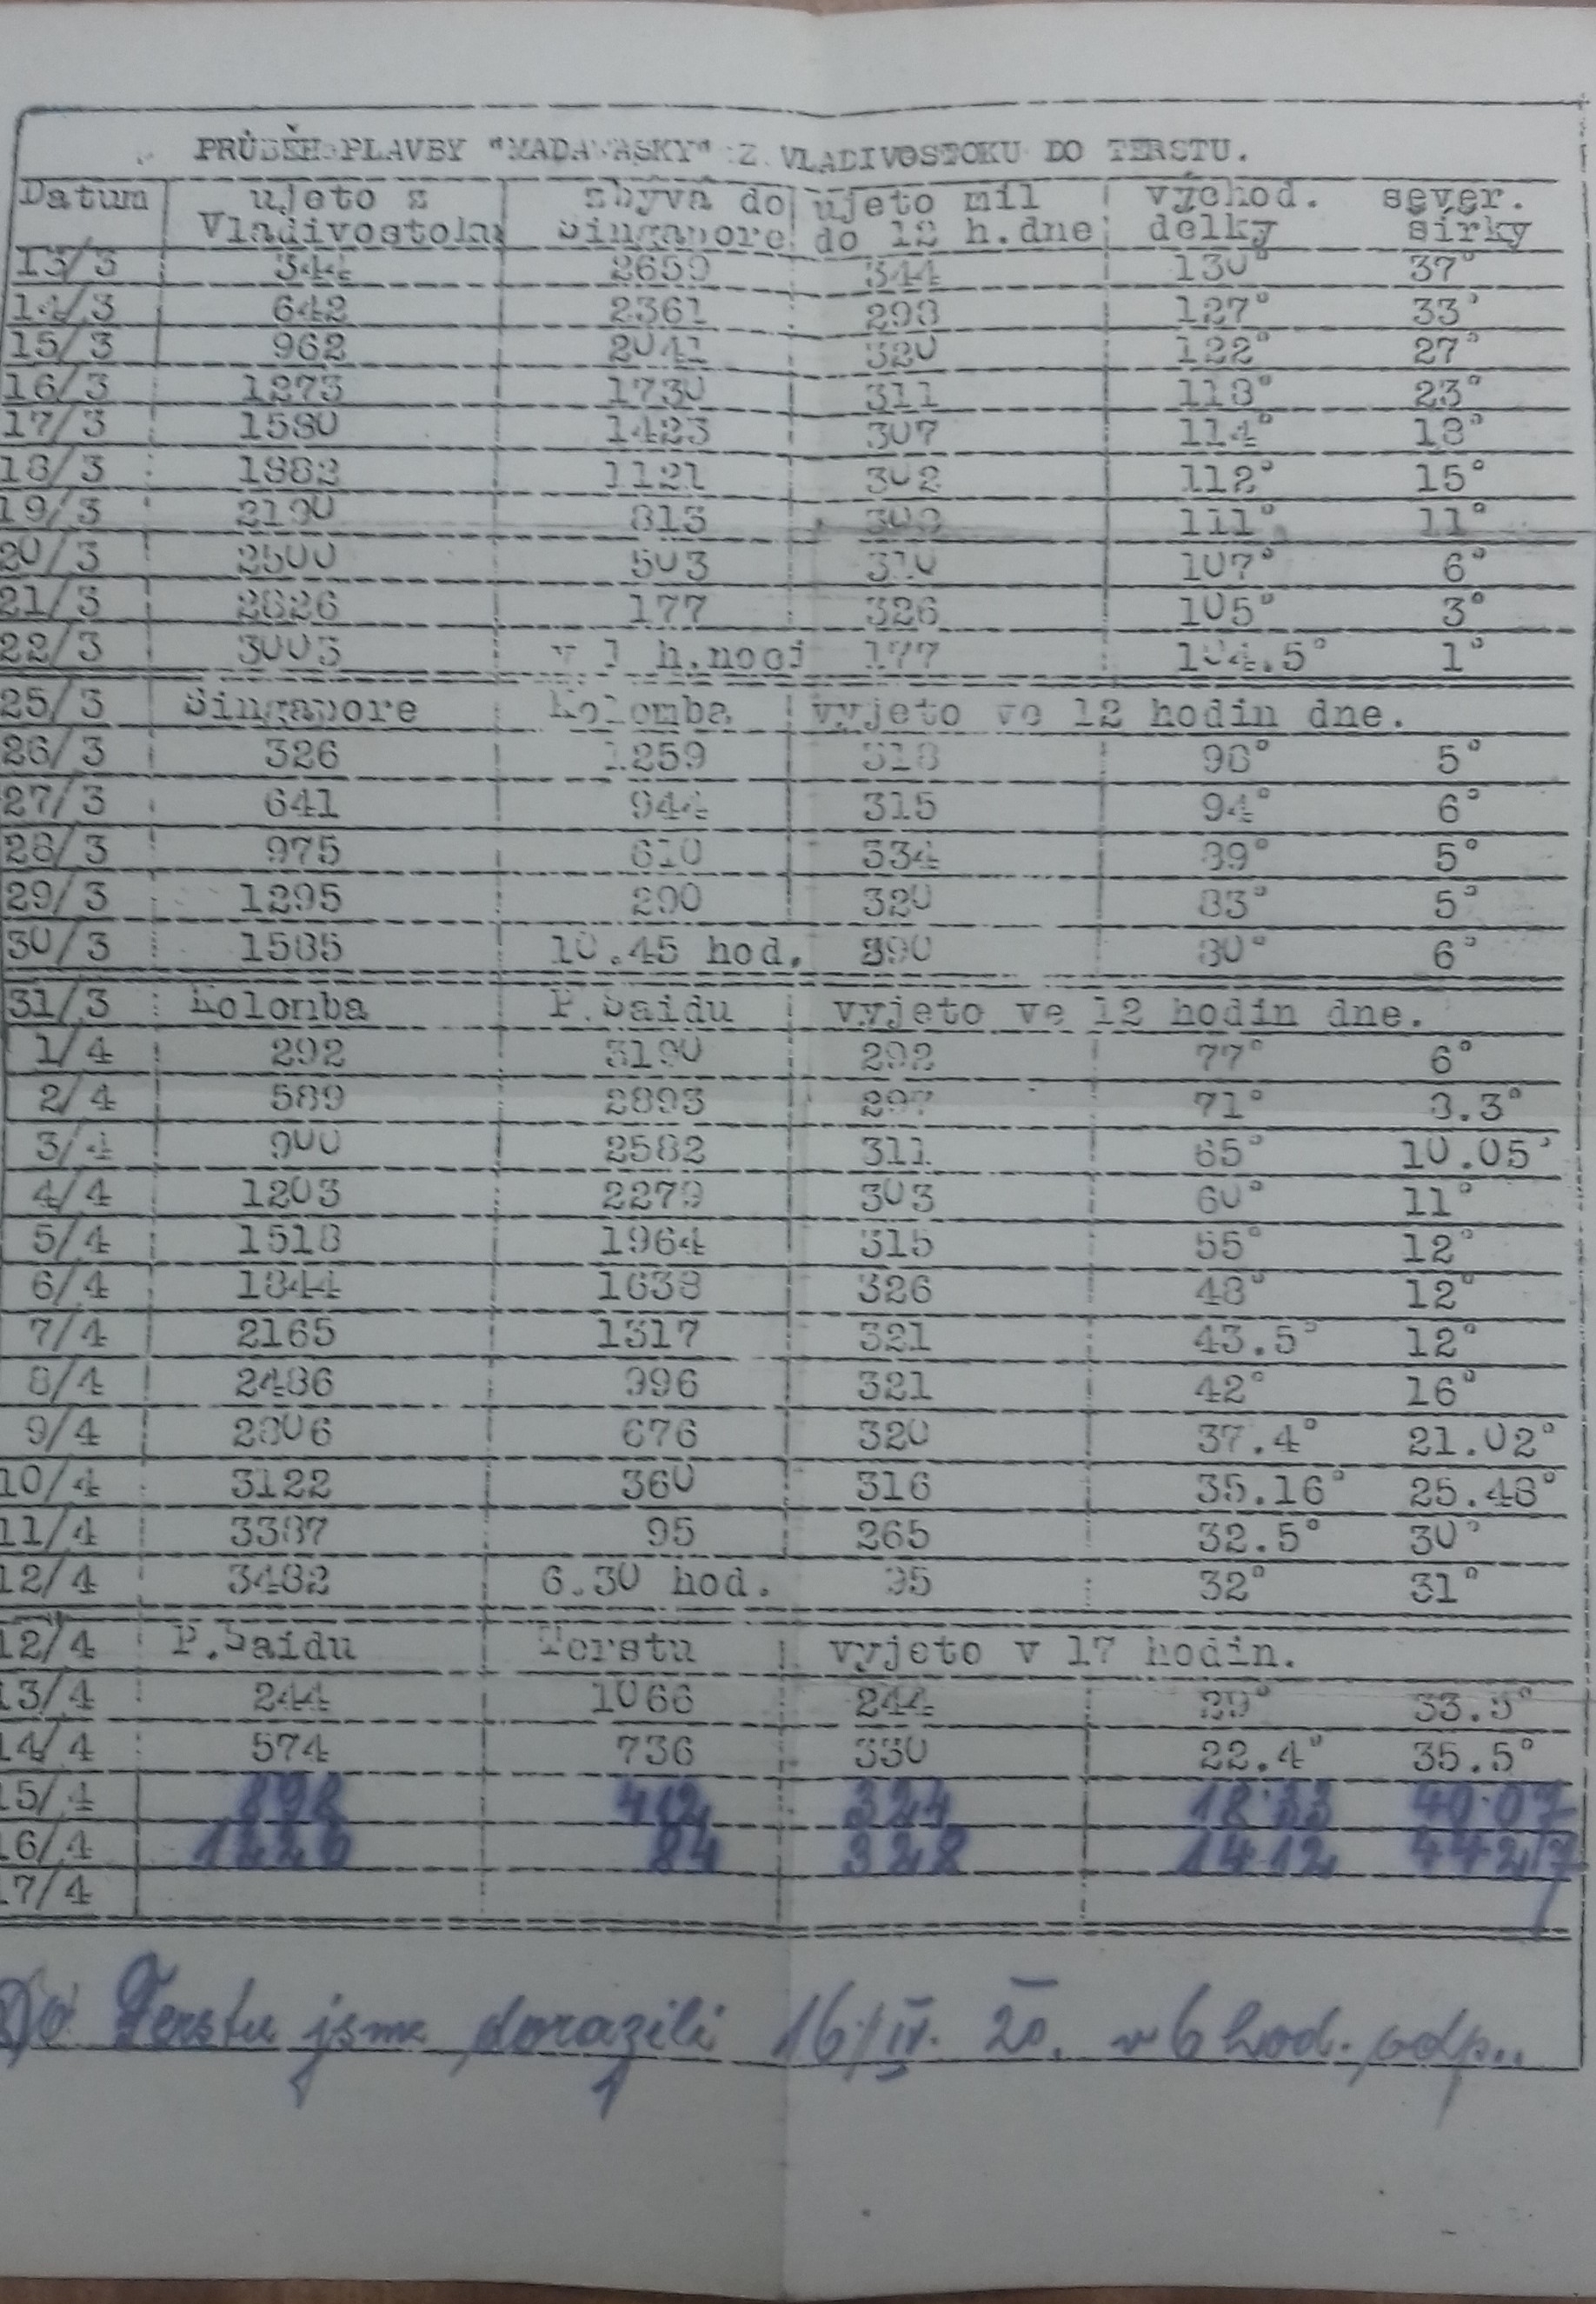 PRŮBĚH PLAVBY "MADAWASKY" Z VLADIVOSTOKU DO TERSTU.
Datum ujeto z zbývá do ujeto mil východ. sever.
Vladivostoku Singapore do 12 h.dne délky šírky
13/3 344 2659 344 130° 37°
14/3 642 2361 298 127° 33°
15/3 962 2041 320 122° 27°
16/3 1273 1730 311 118° 23°
17/3 1580 1423 307 114° 18°
18/3 1882 1121 302 112° 15°
19/3 2190 813 308 111° 11°
20/3 2500 503 310 107° 6°
21/3 2826 177 326 105° 3°
22/3 3003 v 1 h.noci 177 104.5° 1°
25/3 Singapore Kolomba vyjeto ve 12 hodin dne.
26/3 326 1259 318 98° 5°
27/3 641 944 315 94° 6°
28/3 975 610 334 89° 5°
29/3 1295 290 320 83° 5°
30/3 1585 10.45 hod. 290 80° 6°
31/3 Kolomba P.Saidu vyjeto ve 12 hodin dne.
1/4 292 3190 292 77° 6°
2/4 589 2893 297 71° 8.3°
3/4 900 2582 311 65° 10.05°
4/4 1203 2279 303 60° 11°
5/4 1518 1964 315 55° 12°
6/4 1844 1638 326 48° 12°
7/4 2165 1317 321 43.5° 12°
8/4 2486 996 321 42° 16°
9/4 2806 676 320 37.4° 21.02°
10/4 3122 360 316 35.16° 25.48°
11/4 3387 95 265 32.5° 30°
12/4 3482 6.30 hod. 95 32° 31°
12/4 P.Saidu Terstu vyjeto v 17 hodin.
13/4 244 1066 244 29° 33.5°
14/4 574 736 330 22.4° 35.5°
15/4 898 412 324 18·33 40·07
16/4 1226 84 328 1412 4427
17/4
Do Terstu jsme dorazili 16/IV. 20. v 6 hod. odp..